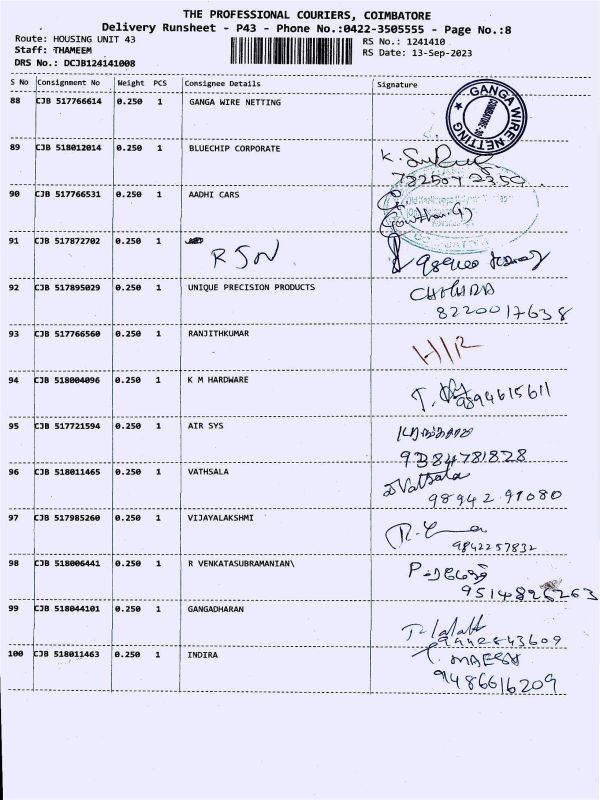 THE PROFESSIONAL COURIERS, COIMBATORE
Delivery Runsheet - P43 - Phone No.:0422-3505555 - Page No.:8
Route: HOUSING UNIT 43
RS No.: 1241410
Staff: THAMEEM
RS Date: 13-Sep-2023
DRS No.: DCJB124141008
S No Consignment No Weight PCS Consignee Details Signature
88 CJB 517766614 0.250 1 GANGA WIRE NETTING
GANGA WIRE NETTING
89 CJB 518012014 0.250 1 BLUECHIP CORPORATE
K.
90 CJB 517766531 0.250 1 AADHI CARS
91 CJB 517872702 0.250 1 RSN
92 CJB 517895029 0.250 1 UNIQUE PRECISION PRODUCTS
8220017638
93 CJB 517766560 0.250 1 RANJITHKUMAR
94 CJB 518004096 0.250 1 K M HARDWARE
9894615611
95 CJB 517721594 0.250 1 AIR SYS
9384781828
96 CJB 518011465 0.250 1 VATHSALA
Vatsala
98942 91080
97 CJB 517985260 0.250 1 VIJAYALAKSHMI
9842257832
98 CJB 518006441 0.250 1 R VENKATASUBRAMANIAN\
99 CJB 518044101 0.250 1 GANGADHARAN
9442843609
100 CJB 518011463 0.250 1 INDIRA
9486616209